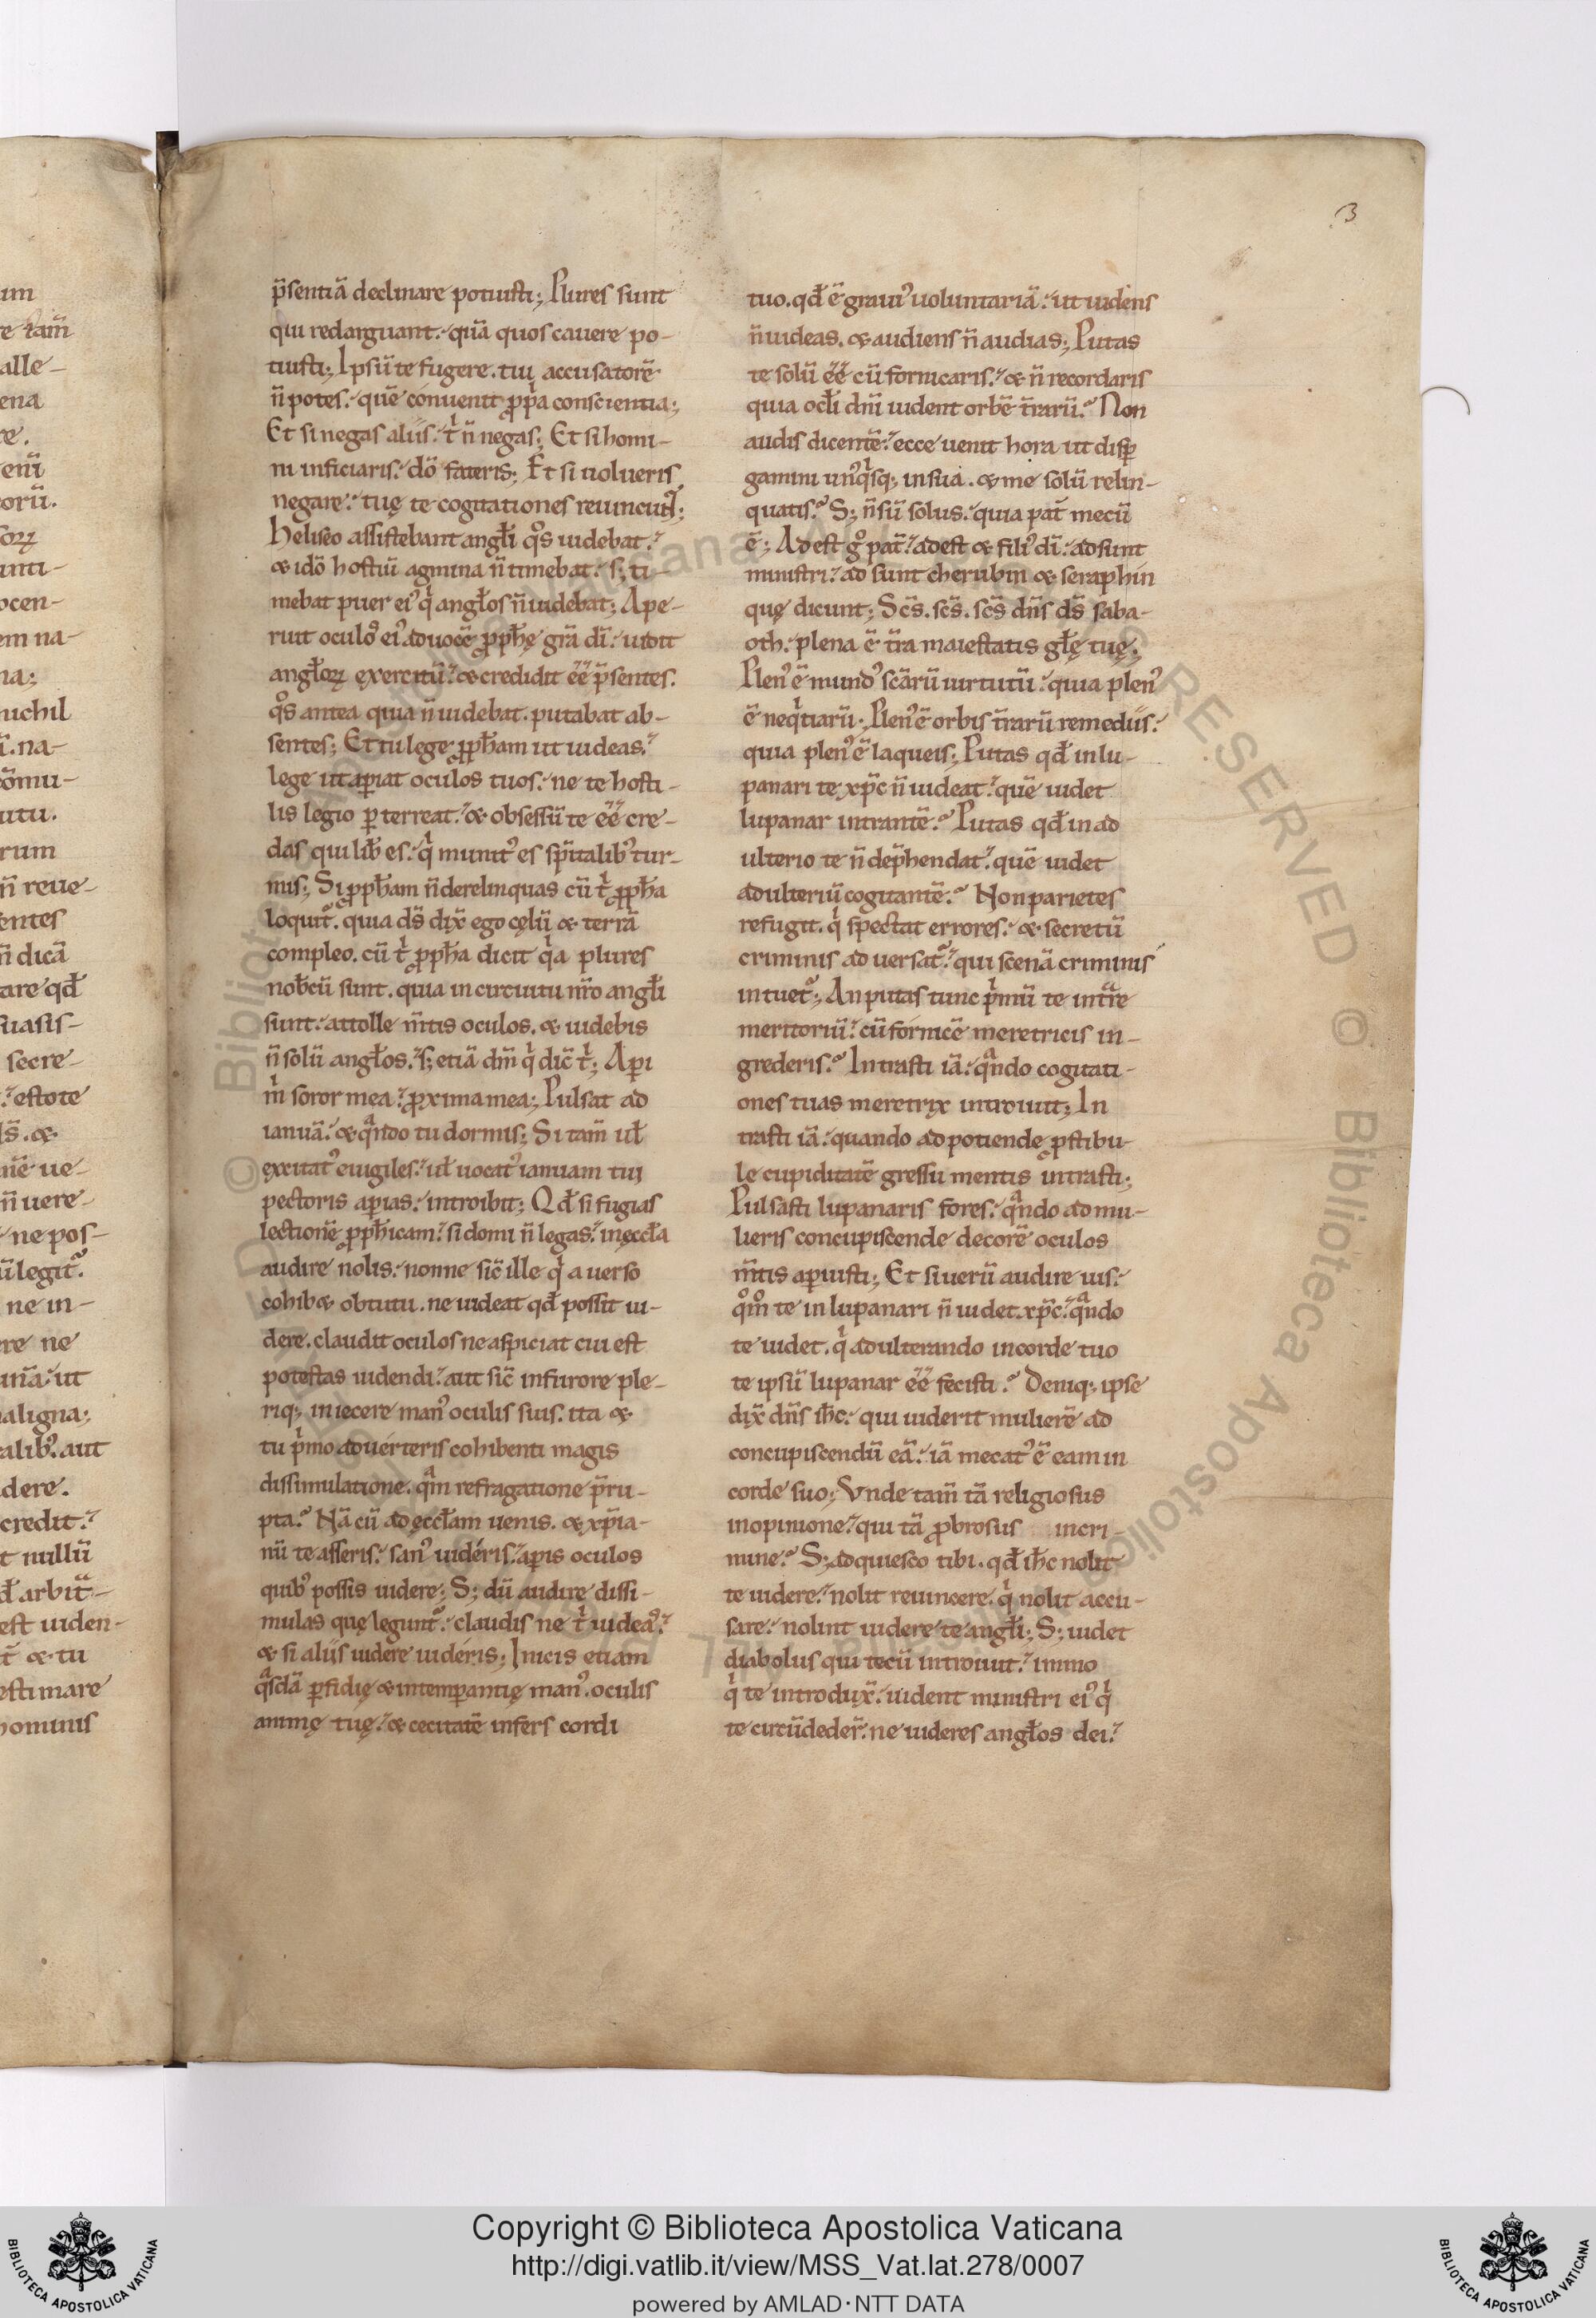 um
re tam̄
alle-
ena
re.
enī
orū.
soꝝ
unti-
ocen-
em na-
na;
nichil
ā. na-
cōmu-
utu.
rum
n̄ reue-
entes
n̄ dicā
tare qđ
suasis-
secre-
estote
ls̄. &
mē ue-
n̄ uere-
ne pos-
ūlegit᷑.
ne in-
ere ne
unā ut
maligna;
alib᾽. aut
dere.
credit.
t nullū
đ arbitͣ-
est uiden-
t̄ & tu
estimare
hominis
p̄sentiā declinare potuisti; Plures sunt
qui redarguant. quā quos cauere po-
tuisti; Ipsū te fugere. tuı̨ accusatorē
n̄ potes. quē cónuenit ꝓp̄a conscientia;
Et si negas aliis. tⁱ n̄ negas; Et si homi-
ni inficiaris. dō fateris; Et si uolueris
negare. tuę te cogitationes reuincunt;
Heliseo assistebant angłi qᵒs uidebat.
& idō hostiū agmina n̄ timebat. s; ti-
mebat puer ei᾽ qⁱ angłos n̄ uidebat; Ape-
ruit oculo᾽ ei᾽ ad uocē ꝓpħę grā dī. uidit
angłoꝝ ęxercitū. & credidit ēē p̄sentes.
qᵒs antea quia n̄ uidebat. putabat ab-
sentes; Et tu lege ꝓpħam ut uideas.
lege ut aꝑiat oculos tuos. ne te hosti-
lis legio ꝑterreat. & obsessū te ēē cre-
das qui lib̄ es. qⁱ munit᾽ es sp̄italib᾽ tur-
mis; Si ꝓpħam n̄ derelinquas cū tⁱ ꝓpħa
loquit᷑. quia ds̄ dix̄ ego cęlū & terrā
compleo. cū tⁱ ꝓpħa dicit qⁱa plures
nob̄cū sunt. quia in circuitu nr̄o angłi
sunt. attolle m̄tis oculos. & uidebis
n̄ solū angłos. s; etiā dm̄ qⁱ dic̄ tⁱ; Aꝑi
mⁱ soror mea. ꝓxima mea; Pulsat ad
ianuā. & qͣndo tu dormis; Si tam̄ uł
ęxcitat᾽ euigiles. uł uocat᾽ ianuam tuı̨
pectoris aꝑias. introibit; Qđ si fugias
lectionē ꝓpħicam. si domi n̄ legas. in ęccła
audire nolis. nonne sic̄ ille qⁱ auerso
cohib& obtutu. ne uideat qđ possit ui-
dere. claudit oculos ne aspiciat cui est
potestas uidendi. aut sic̄ in furore ple-
riq; iniecere man᾽ oculis suis. ita &
tu pⁱmo aduérteris cohibenti magis
dissimulatione. qͣm refragatione p̄ru-
pta. Nā cū ad ęccłam uenis. & xp̄ia-
nū te asseris. san᾽ uidéris. aꝑis oculos
quib᾽ possis uidere; S; dū audire dissi-
mulas quę legunt᷑. claudis ne tⁱ uidea᾽.
& si aliis uidere uidéris; Inicis etiam
qͣsdā ꝑfidię & intemꝑantię man᾽. oculis
animę tuę. & cecitatē infers cordi
tuo. qđ ē graui᾽ uoluntariā. ut uidens
n̄ uideas. & audiens n̄ audias; Putas
te solū ēē cū fornicaris. & n̄ recordaris
quia ocłi dnī uident orbē t̄rarū. Non
audis dicentē. ecce uenit hora ut disꝑ
gamini un᾽qⁱsq; in sua. & me solū relin-
quatis. S; n̄ sū solus. quia pat̄ mecū
ē; Adest gᵒ pat̄. adest & fili᾽ dī. adsunt
ministri. adsunt cherubin & seraphin
quę dicunt; Scs̄. scs̄. scs̄ dn̄s ds̄ saba-
oth. plena ē t̄ra maiestatis głę tuę;
Plen᾽ ē mund᾽ scārū uirtutū. quia plen᾽
ē neqⁱtiarū. Plen᾽ ē orbis t̄rarū remediis.
quia plen᾽ ē laqueis; Putas qđ in lu-
panari te xp̄c n̄ uideat. quē uidet
lupanar intrantē. Putas qđ in ad
ulterio te n̄ dep̄hendat. quē uidet
adulteriū cogitantē. Non parietes
refugit. qⁱ spectat errores. & secretū
criminis aduersat᷑. qui scenā criminis
intuet᷑; An putas tunc pⁱmū te intͣre
meritoriū. cū fornicē meretricis in-
grederis. Intrasti iā. qͣndo cogitati-
ones tuas meretrix introiuit; In
trasti iā. quando ad potiendę ꝓstibu-
le cupiditatē gressu mentis intrasti;
Pulsasti lupanaris fores. qͣndo ad mu-
lieris concupiscende decorē oculos
m̄tis aꝑuisti; Et si uerū audire uis.
qᵒmᵒ te in lupanari n̄ uidet xp̄c. qͣndo
te uidet. qⁱ adulterando in corde tuo
te ipsū lupanar ēē fecisti. Deniq; ipse
dix̄ dn̄s ih̄c. qui uiderit mulierē ad
concupiscendū eā. iā mecat᾽ ē eam in
corde suo; Vnde tam̄ tā religiosus
in opinione. qui tā ꝓbrosus in cri-
mine. S; adquiesco tibi. qđ ih̄c nolit
te uidere. nolit reuincere. qⁱ nolit accu-
sare. nolint uidere te angłi; S; uidet
diabolus qui tecū introiuit. immo
qⁱ te introdux̄. uident ministri ei᾽ qⁱ
te circūdeder̄. ne uideres angłos dei.
3
© Biblioteca Apostolica Vaticana ALL RIGHTS RESERVED
BIBLIOTECA APOSTOLICA VATICANA
Copyright © Biblioteca Apostolica Vaticana
http://digi.vatlib.it/view/MSS_Vat.lat.278/0007
powered by AMLAD·NTT DATA
BIBLIOTECA APOSTOLICA VATICANA